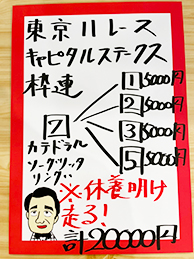 東京11レース
キャピタルステークス
枠連
7
1 5000円
2 5000円
3 5000円
5 5000円
カラドラル
ソーグリッタ
リング
※休養明け
走る!
計20000円